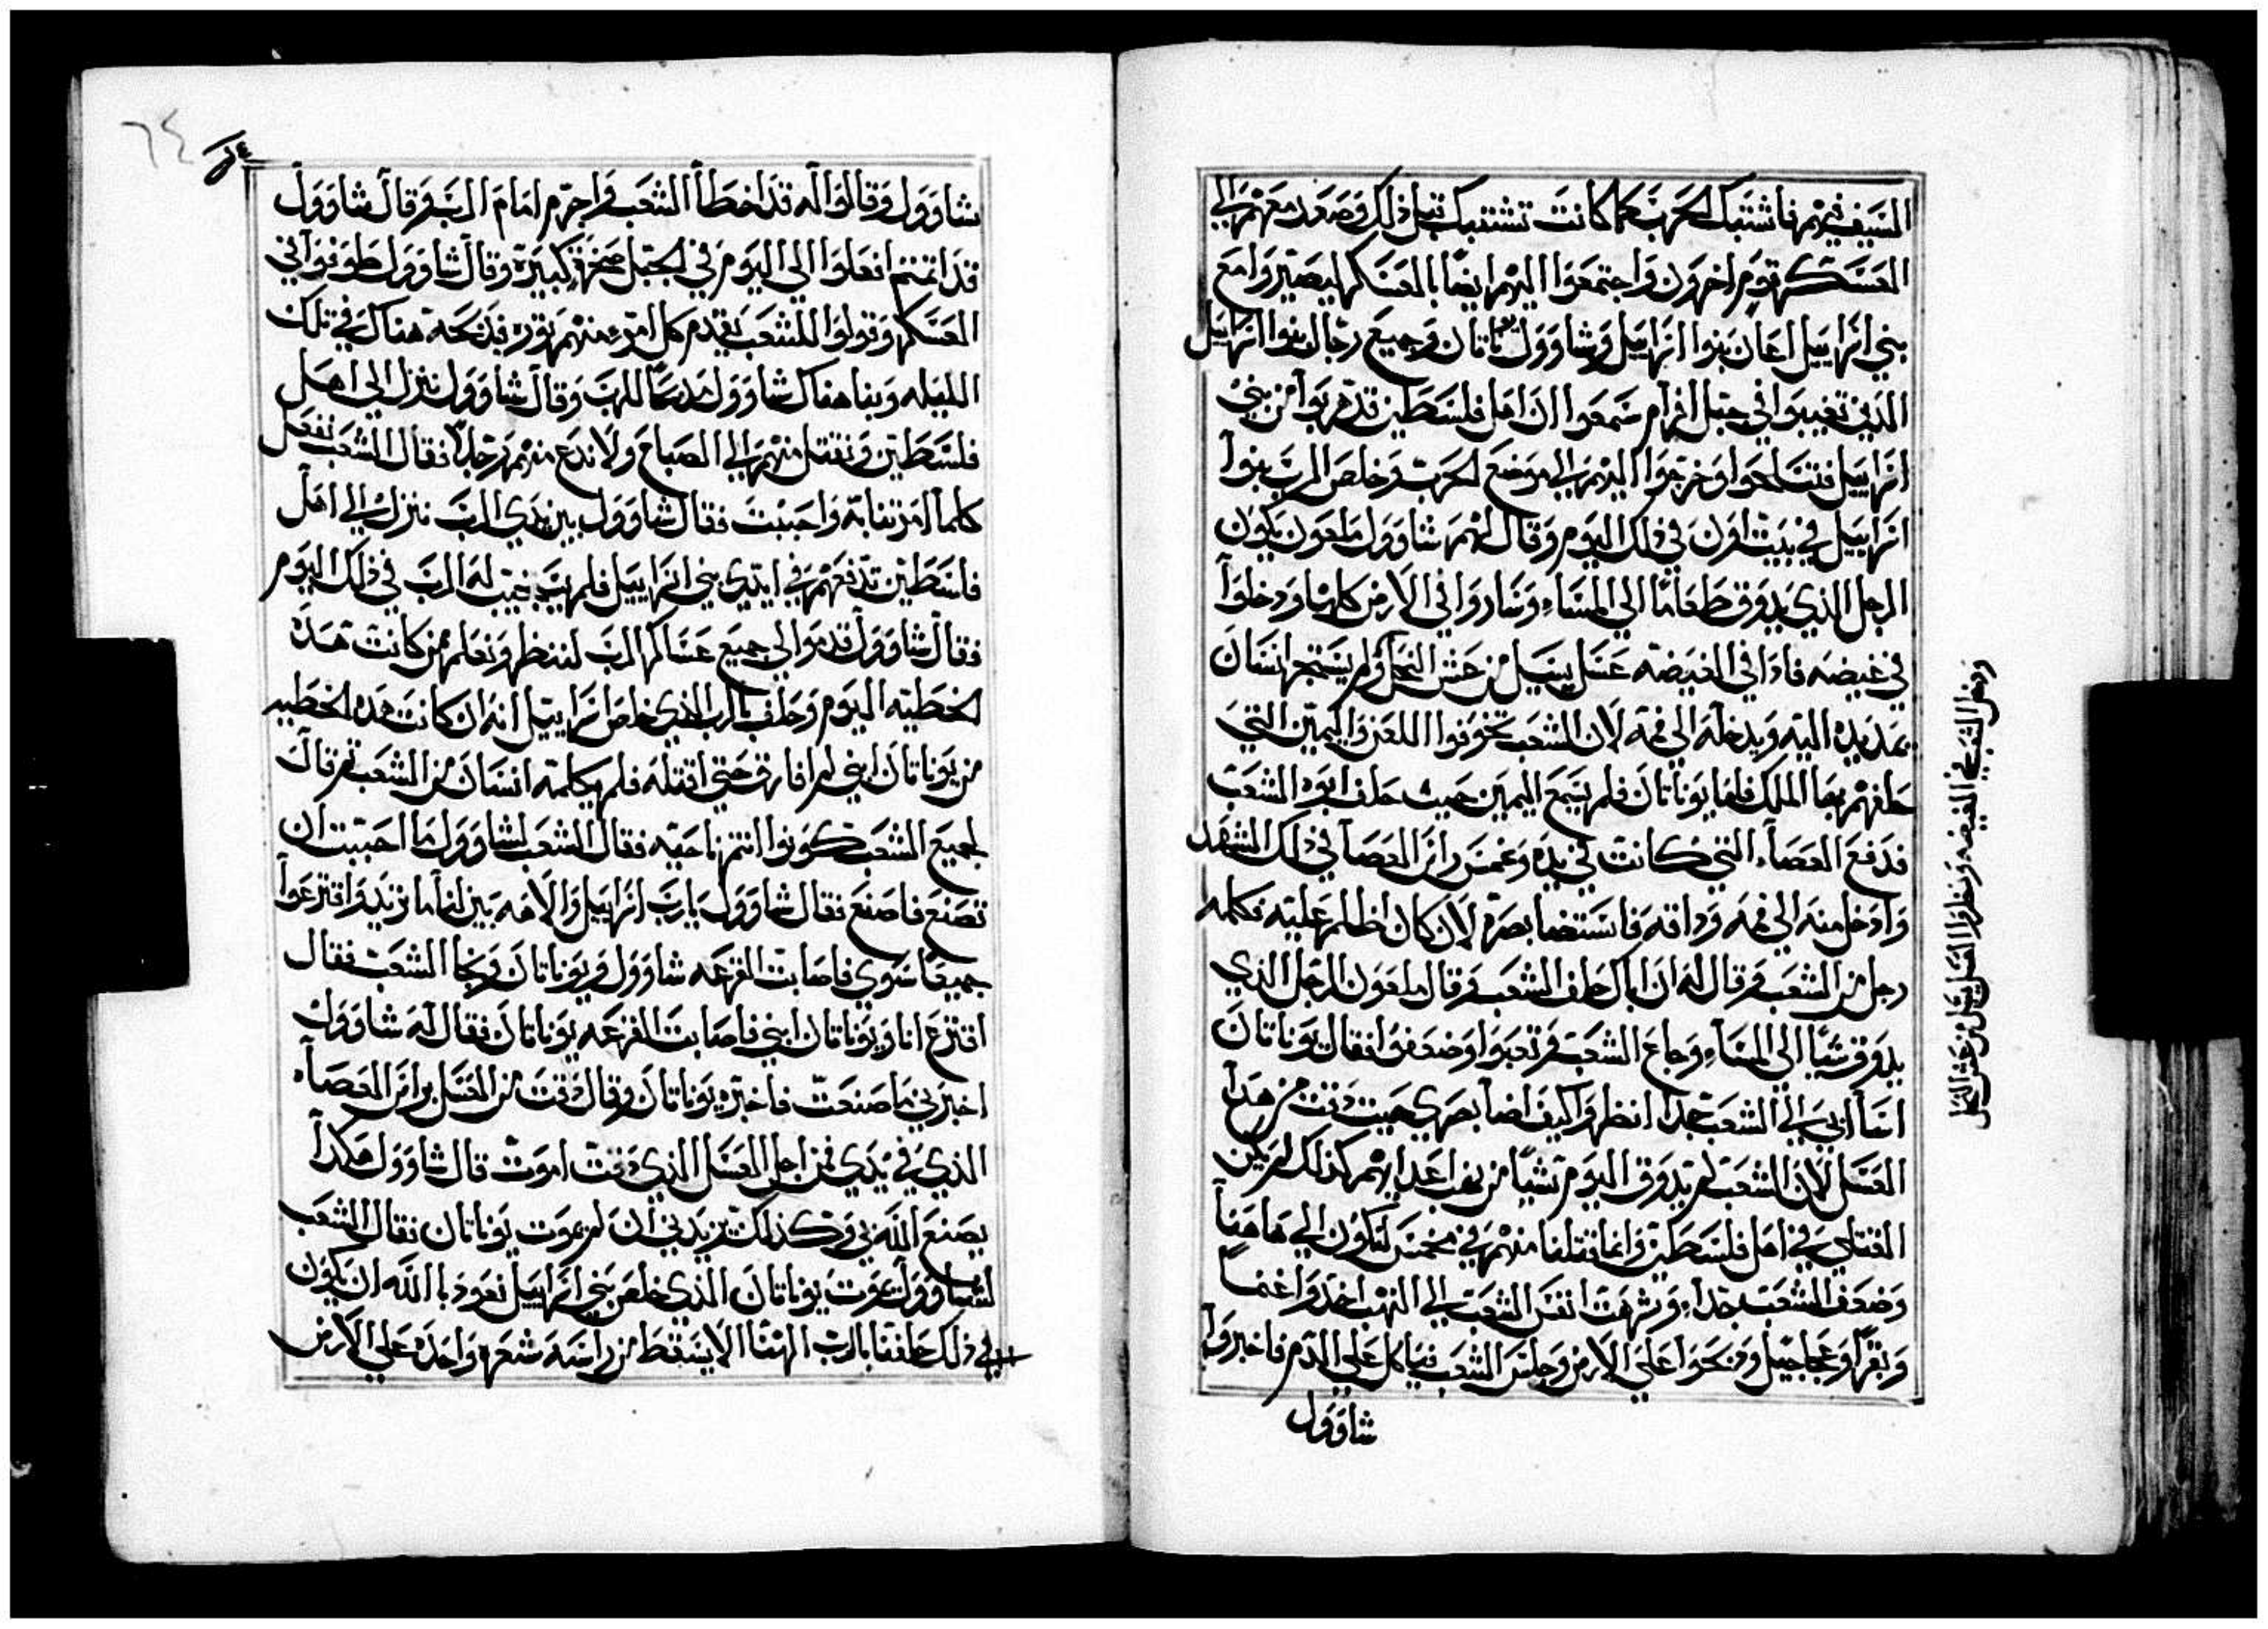 السيف فيهم فاشتبك الحرب كما كانت تشتبك قبل ذلك وصعد معهم الي
العسكر قوم اخرون واجتمعوا اليهم ايضا بالعسكر ليصيروا مع
بني اسراييل اعان بنوا اسراييل وشاوول يوناتان وجميع رجال بنوا اسراييل
الذين تغيبوا في جبل افرام سمعوا ان اهل فلسطين قد هربوا من بني
اسراييل فتسلحوا وخرجوا اليهم الي موضع الحرب وخلص الرب بنوا
اسراييل في بيت اون في ذلك اليوم وقال لهم شاوول ملعون يكون
الرجل الذي يدوق طعاما الي المساء وساروا في الارض كلها ودخلوا
في غيضه فادا في الغيضه عسل يسيل من عش النحل ولم يستجر انسان
يمد يده اليه ويدخله الي فمه لان الشعب تخوفوا اللعن واليمين التي
حلفهم بها الملك فاما يوناتان فلم يسمع اليمين حيث حلف ابوه الشعب
فدفع العصاء التي كانت في يده وغمس راس العصا في ذلك الشهد
وادخل منه الي فمه وداقه فاستضا بصره لان كان اظلم عليه فكلمه
رجل من الشعب وقال له ان اباك حلف الشعب وقال ملعون الرجل الذي
يدوق شيا الي المساء وجاع الشعب وتعبوا وضعفوا فقال يوناتان
اسا ابي الي الشعب جدا انظروا كيف اضا بصري حيث دقت من هدا
العسل لان الشعب لم يدوق اليوم شيا من نهب اعدايهم كذلك لم يكن
القتلي في اهل فلسطين وانما قتلنا منهم في مخمس لتكون الي هاهنا
وضعف الشعب جدا وشرهت انفس الشعب الي النهب اخدوا غنما
وبقرا وعجاجيل ودبحوا علي الارض وجلس الشعب فياكل علي الدم فاخبروا
شاوول
ودخل الشعب في الغيضه ونظروا العسل يسيل من عش النحل
٦٤
شاوول وقالوا له قد اخطا الشعب واجرم امام الرب وقال شاوول
قد اتمتم افعلوا الي اليوم في الجبل صخرة كبيرة وقال شاوول طوفوا في
العسكر وقولوا للشعب يقدم كل امرء منهم ثوره فدبحه هناك في تلك
الليله وبنا هناك شاوول مدبحا للرب وقال شاوول ننزل الي اهل
فلسطين ونقتل منهم الي الصباح ولا ندع منهم رجلا فقال الشعب نفعل
كلما امرتنا به واحببت فقال شاوول بين يدي الرب ننزل الي اهل
فلسطين تدفعهم في ايدي بني اسراييل فلم يجيب له الرب في ذلك اليوم
فقال شاوول قدموا الي جميع عساكر الرب لننظر ونعلم ممن كانت هده
الخطيه اليوم وحلف بالرب الذي خلص اسراييل انه ان كانت هده الخطيه
من يوناتان ابني لم افارقه حتي اقتله فلم يكلمه انسان من الشعب ثم قال
لجميع الشعب كونوا انتم ناحيه فقال الشعب لشاوول ما احببت ان
تصنع فاصنع فقال شاوول يارب اسراييل والاهه بين لنا ما نريد واقترعوا
جميعا سوي فاصابت القرعه شاوول ويوناتان ونجا الشعب فقال
اقترع انا ويوناتان ابني فاصابت القرعه يوناتان فقال له شاوول
اخبرني ما صنعت فاخبره يوناتان وقال دقت من العسل براس العصاه
الذي في يدي فمن اجل العسل الذي دقت اموت قال شاوول هكدا
يصنع الله بي وكذلك يزيدني ان لم يموت يوناتان فقال الشعب
لشاوول يموت يوناتان الذي خلص بني اسراييل نعود با الله ان يكون
ذلك حلفنا بالرب الهنا الا يسقط من راسه شعره واحده علي الارض